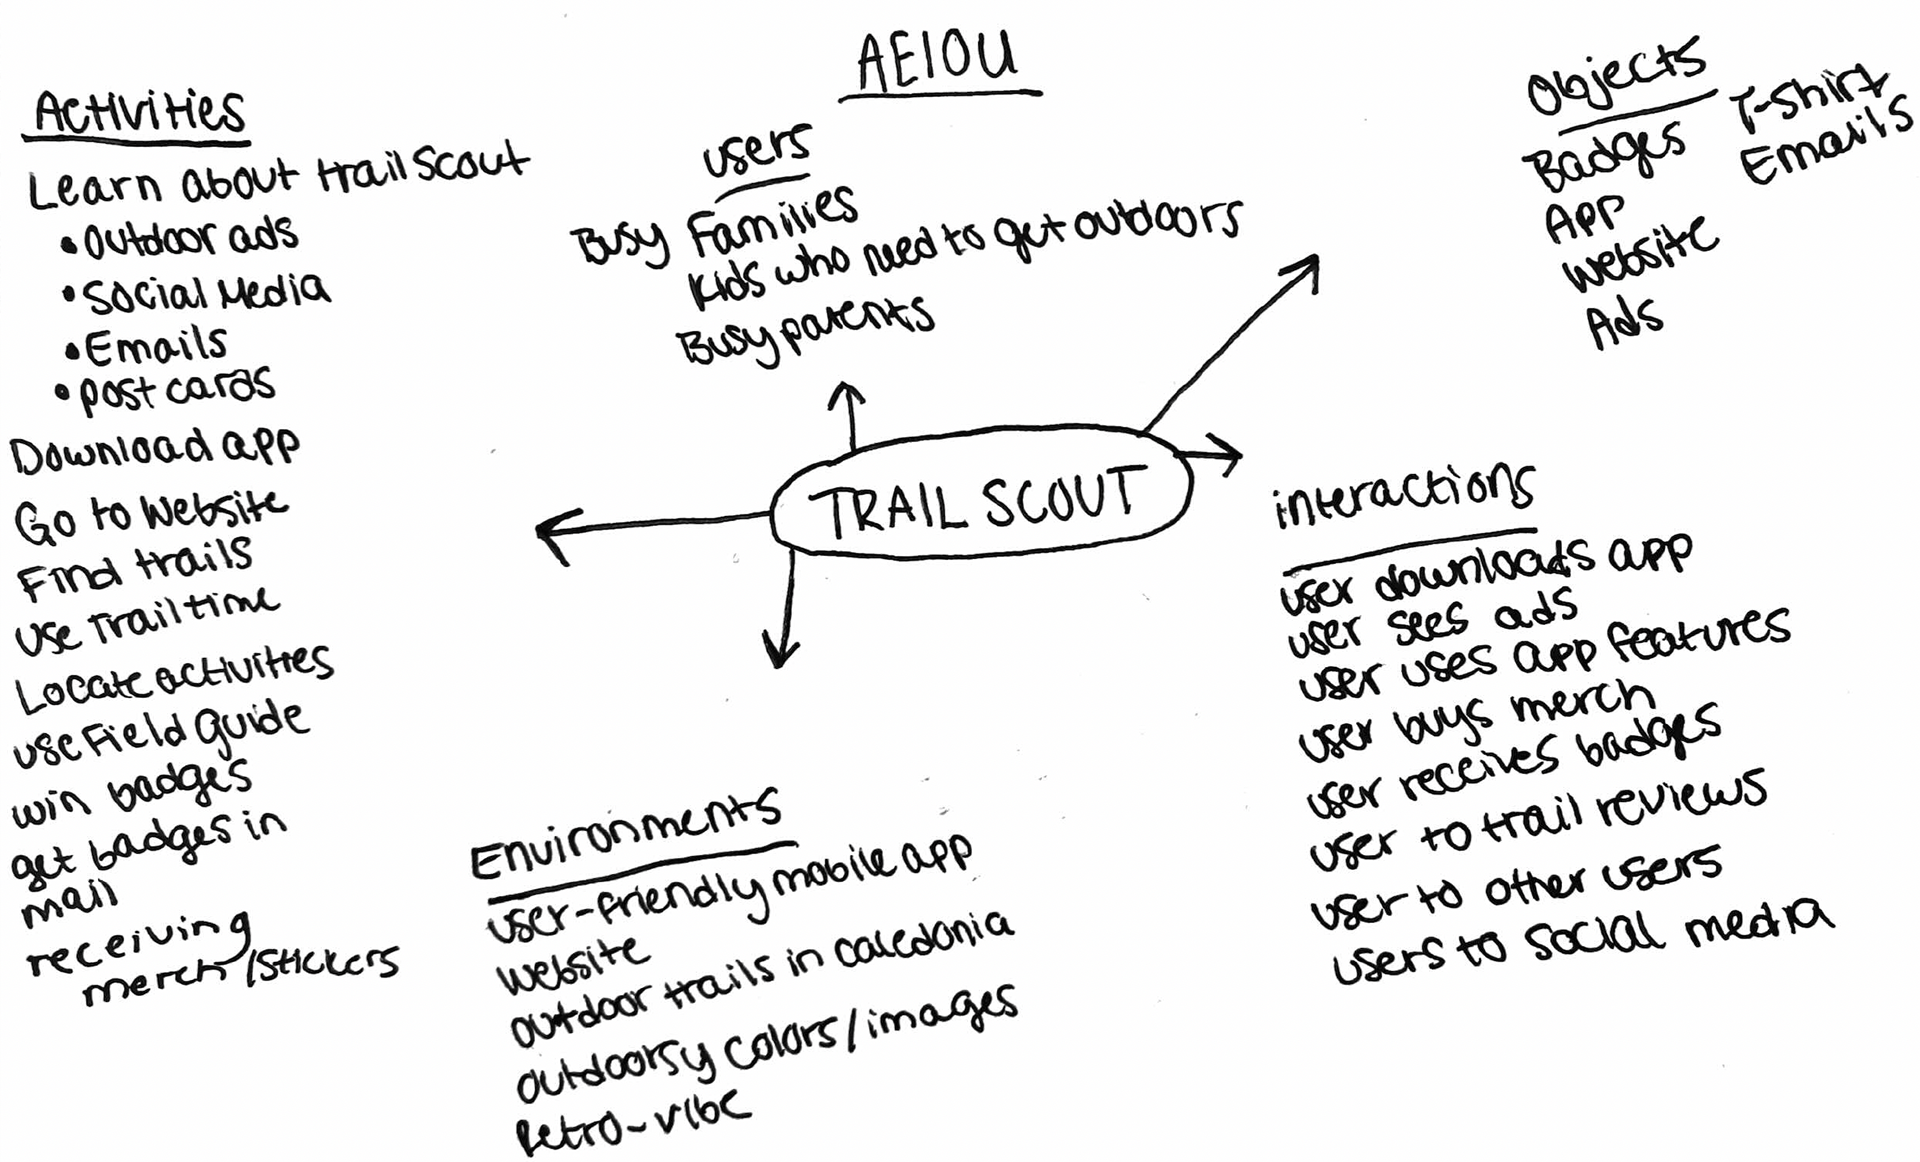 AEIOU
Activities
Learn about trail scout
• outdoor ads
• Social Media
• Emails
• post cards
Download app
Go to website
Find trails
Use Trail time
Locate activities
use Field Guide
win badges
get badges in
mail
receiving
merch/stickers
users
Busy Families
Kids who need to get outdoors
Busy parents
Objects
Badges
App
website
Ads
T-shirt
Emails
TRAIL SCOUT
interactions
user downloads app
user sees ads
user uses app features
user buys merch
user receives badges
user to trail reviews
user to other users
users to social media
Environments
user-friendly mobile app
website
outdoor trails in caledonia
outdoorsy colors/images
Retro-vibe